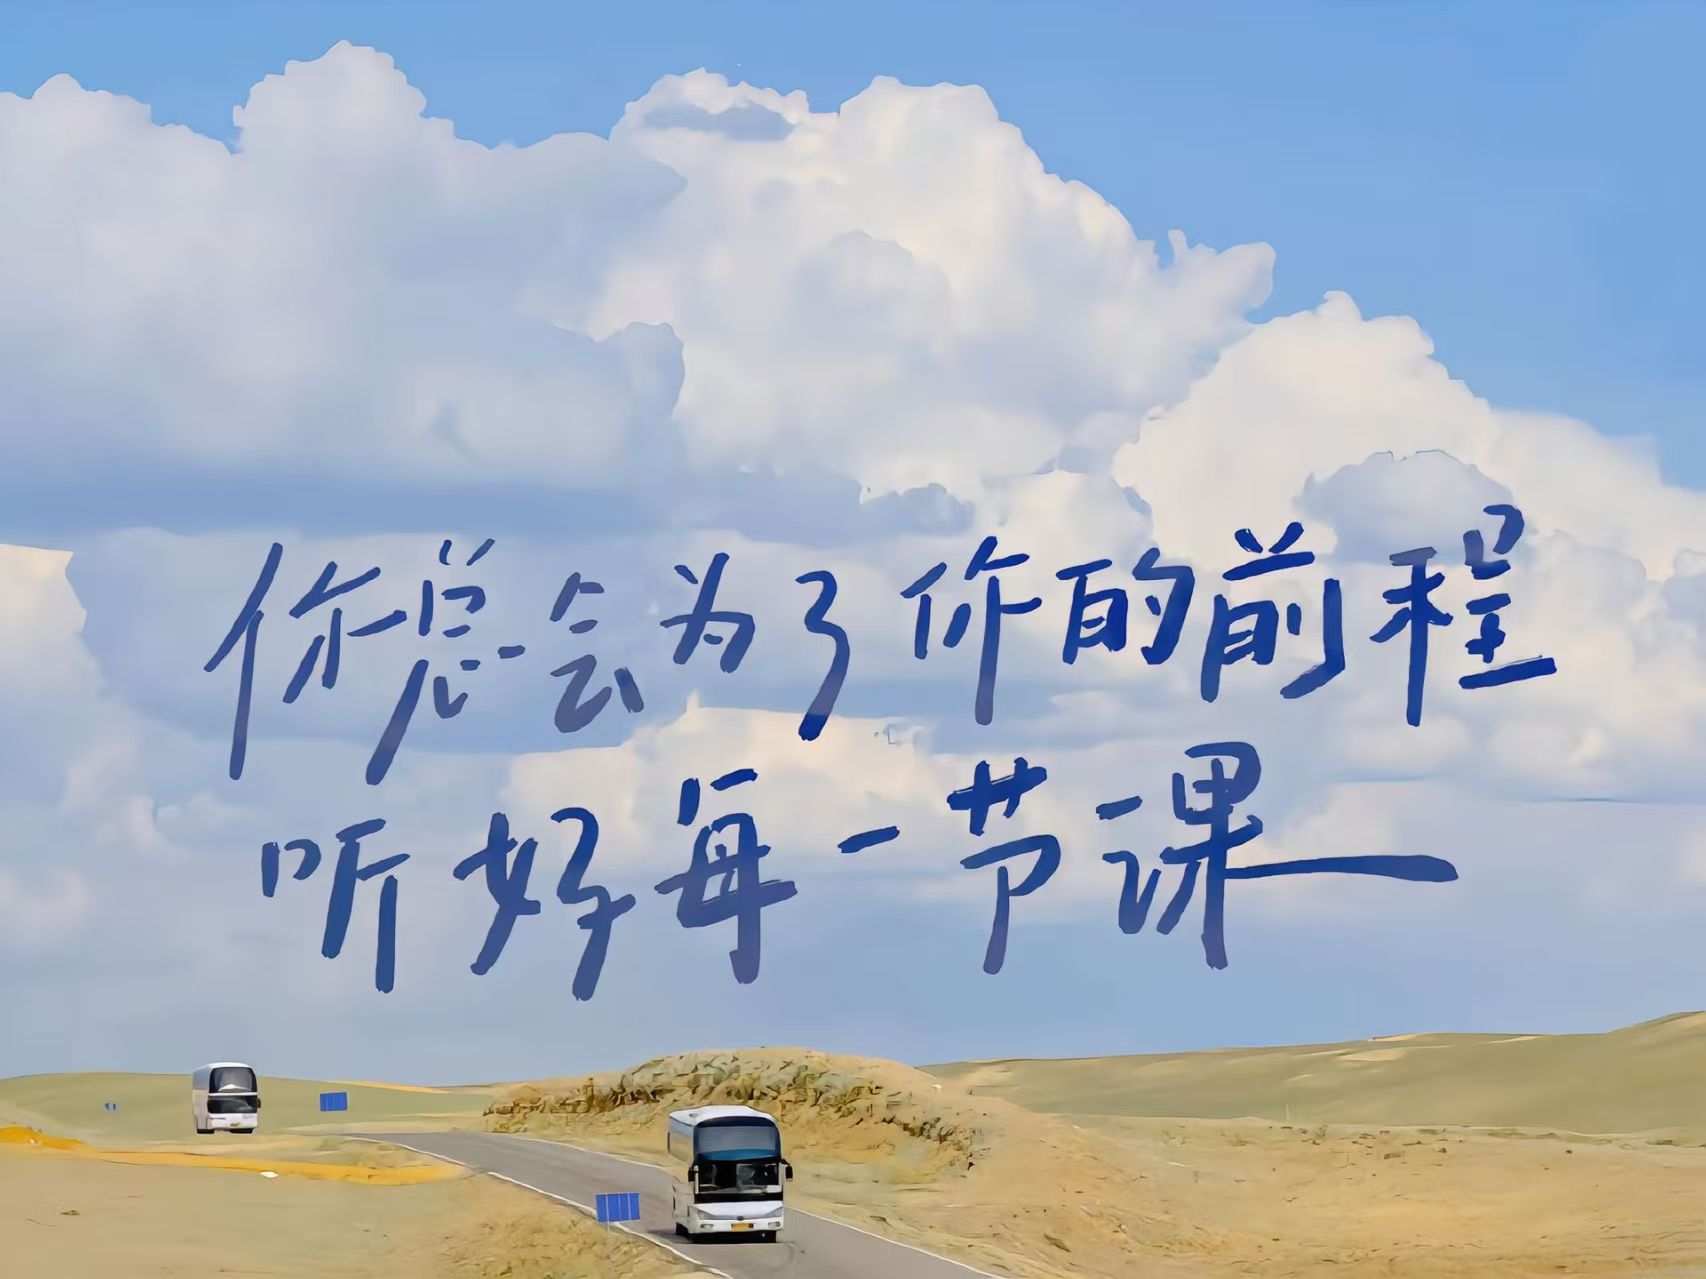 你总会为了你的前程
听好每一节课